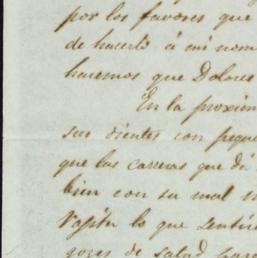 por los favores que
de hacerlo á mi nom
hacemos que Dolores
En la proxim
sus dientes con peque
que las carreras que dí
bien con su mal
lo que sentir
gozes de salud